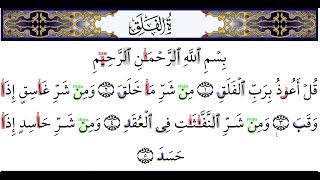 سورة الفلق
بِسْمِ ٱللَّهِ ٱلرَّحْمَٰنِ ٱلرَّحِيمِ
قُلْ أَعُوذُ بِرَبِّ ٱلْفَلَقِ ١ مِن شَرِّ مَا خَلَقَ ٢ وَمِن شَرِّ غَاسِقٍ إِذَا
وَقَبَ ٣ وَمِن شَرِّ ٱلنَّفَّٰثَٰتِ فِى ٱلْعُقَدِ ٤ وَمِن شَرِّ حَاسِدٍ إِذَا
حَسَدَ ٥